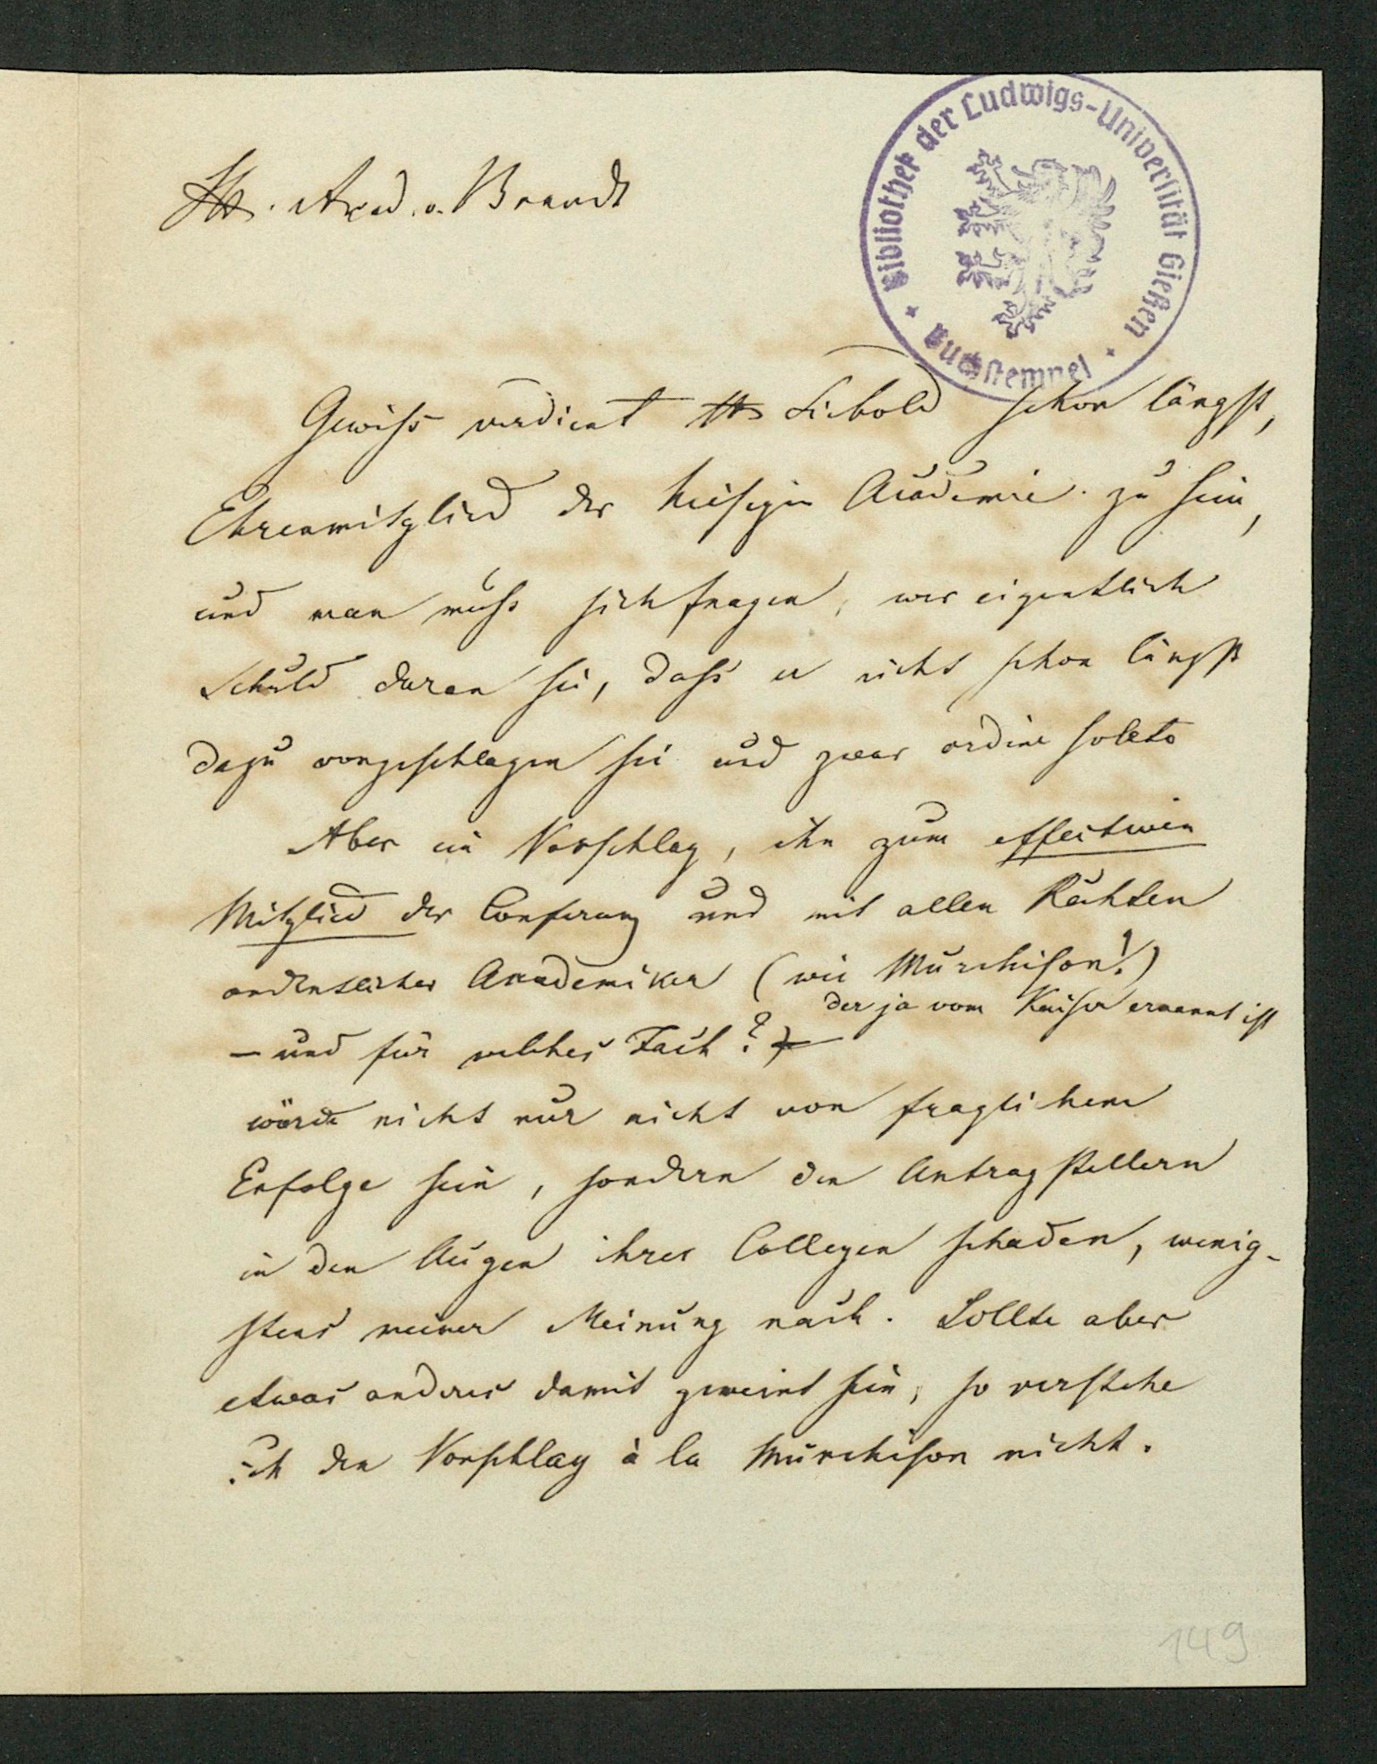 Hr. Acad. v. Brandt
Bibliothek der Ludwigs-Universität Gießen
Buchstempel
Gewiß verdient Hr Siebold schon längst,
Ehrenmitglied der hiesigen Academie zu sein,
und man muß sich fragen, wer eigentlich
Schuld daran sei, daß er nicht schon längst
dazu vorgeschlagen sei und zwar ordine soleto
Aber ein Vorschlag, ihn zum effectiven
Mitglied der Conferenz und mit allen Rechten
ordentlicher Akademiker (wie Murchison!)
der ja vom Kaiser ernannt ist
– und für welches Fach?
würde nicht nur nicht von fraglichem
Erfolge sein, sondern den Antragstellern
in den Augen ihrer Collegen schaden, wenig-
stens meiner Meinung nach. Sollte aber
etwas anderes damit gemeint sein, so verstehe
ich den Vorschlag à la Murchison nicht.
149